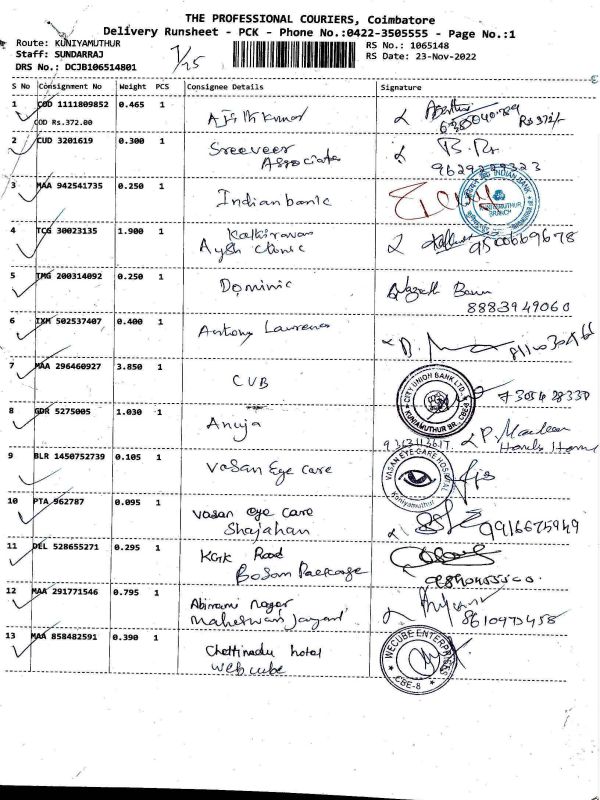 THE PROFESSIONAL COURIERS, Coimbatore
Delivery Runsheet - PCK - Phone No.:0422-3505555 - Page No.:1
Route: KUNIYAMUTHUR
Staff: SUNDARRAJ
DRS No.: DCJB106514801
7/25
RS No.: 1065148
RS Date: 23-Nov-2022
S No Consignment No Weight PCS Consignee Details Signature
1 COD 1111809852 0.465 1
COD Rs.372.00 Rs 372/-
2 CUD 3201619 0.300 1 Sreeveer
Associates
9629229323
3 MAA 942541735 0.250 1 Indian bank
INDIAN BANK
KUNIYAMUTHUR
BRANCH
4 TCG 30023135 1.900 1 Kathiravan
Aysh Clinic 9500669678
5 TMG 200314092 0.250 1 Dominic
8883949060
6 IXM 502537407 0.400 1 Antony Laurence
7 MAA 296460927 3.850 1 CUB
CITY UNION BANK LTD.
KUNIYAMUTHUR BR., CBE-8
8 GDR 5275005 1.030 1 Anuja
9 BLR 1450752739 0.105 1 Vasan Eye care
VASAN EYE CARE HOSPITAL
Kuniyamuthur
10 PTA 962787 0.095 1 vasan eye care
Shajahan 9916675949
11 DEL 528655271 0.295 1 KGK Road
Bosom Package
12 MAA 291771546 0.795 1 Abirami nagar
Maheswari jayanti 8610973458
13 MAA 858482591 0.390 1 Chettinadu hotel
webcube
WECUBE ENTERPRISES
CBE-8